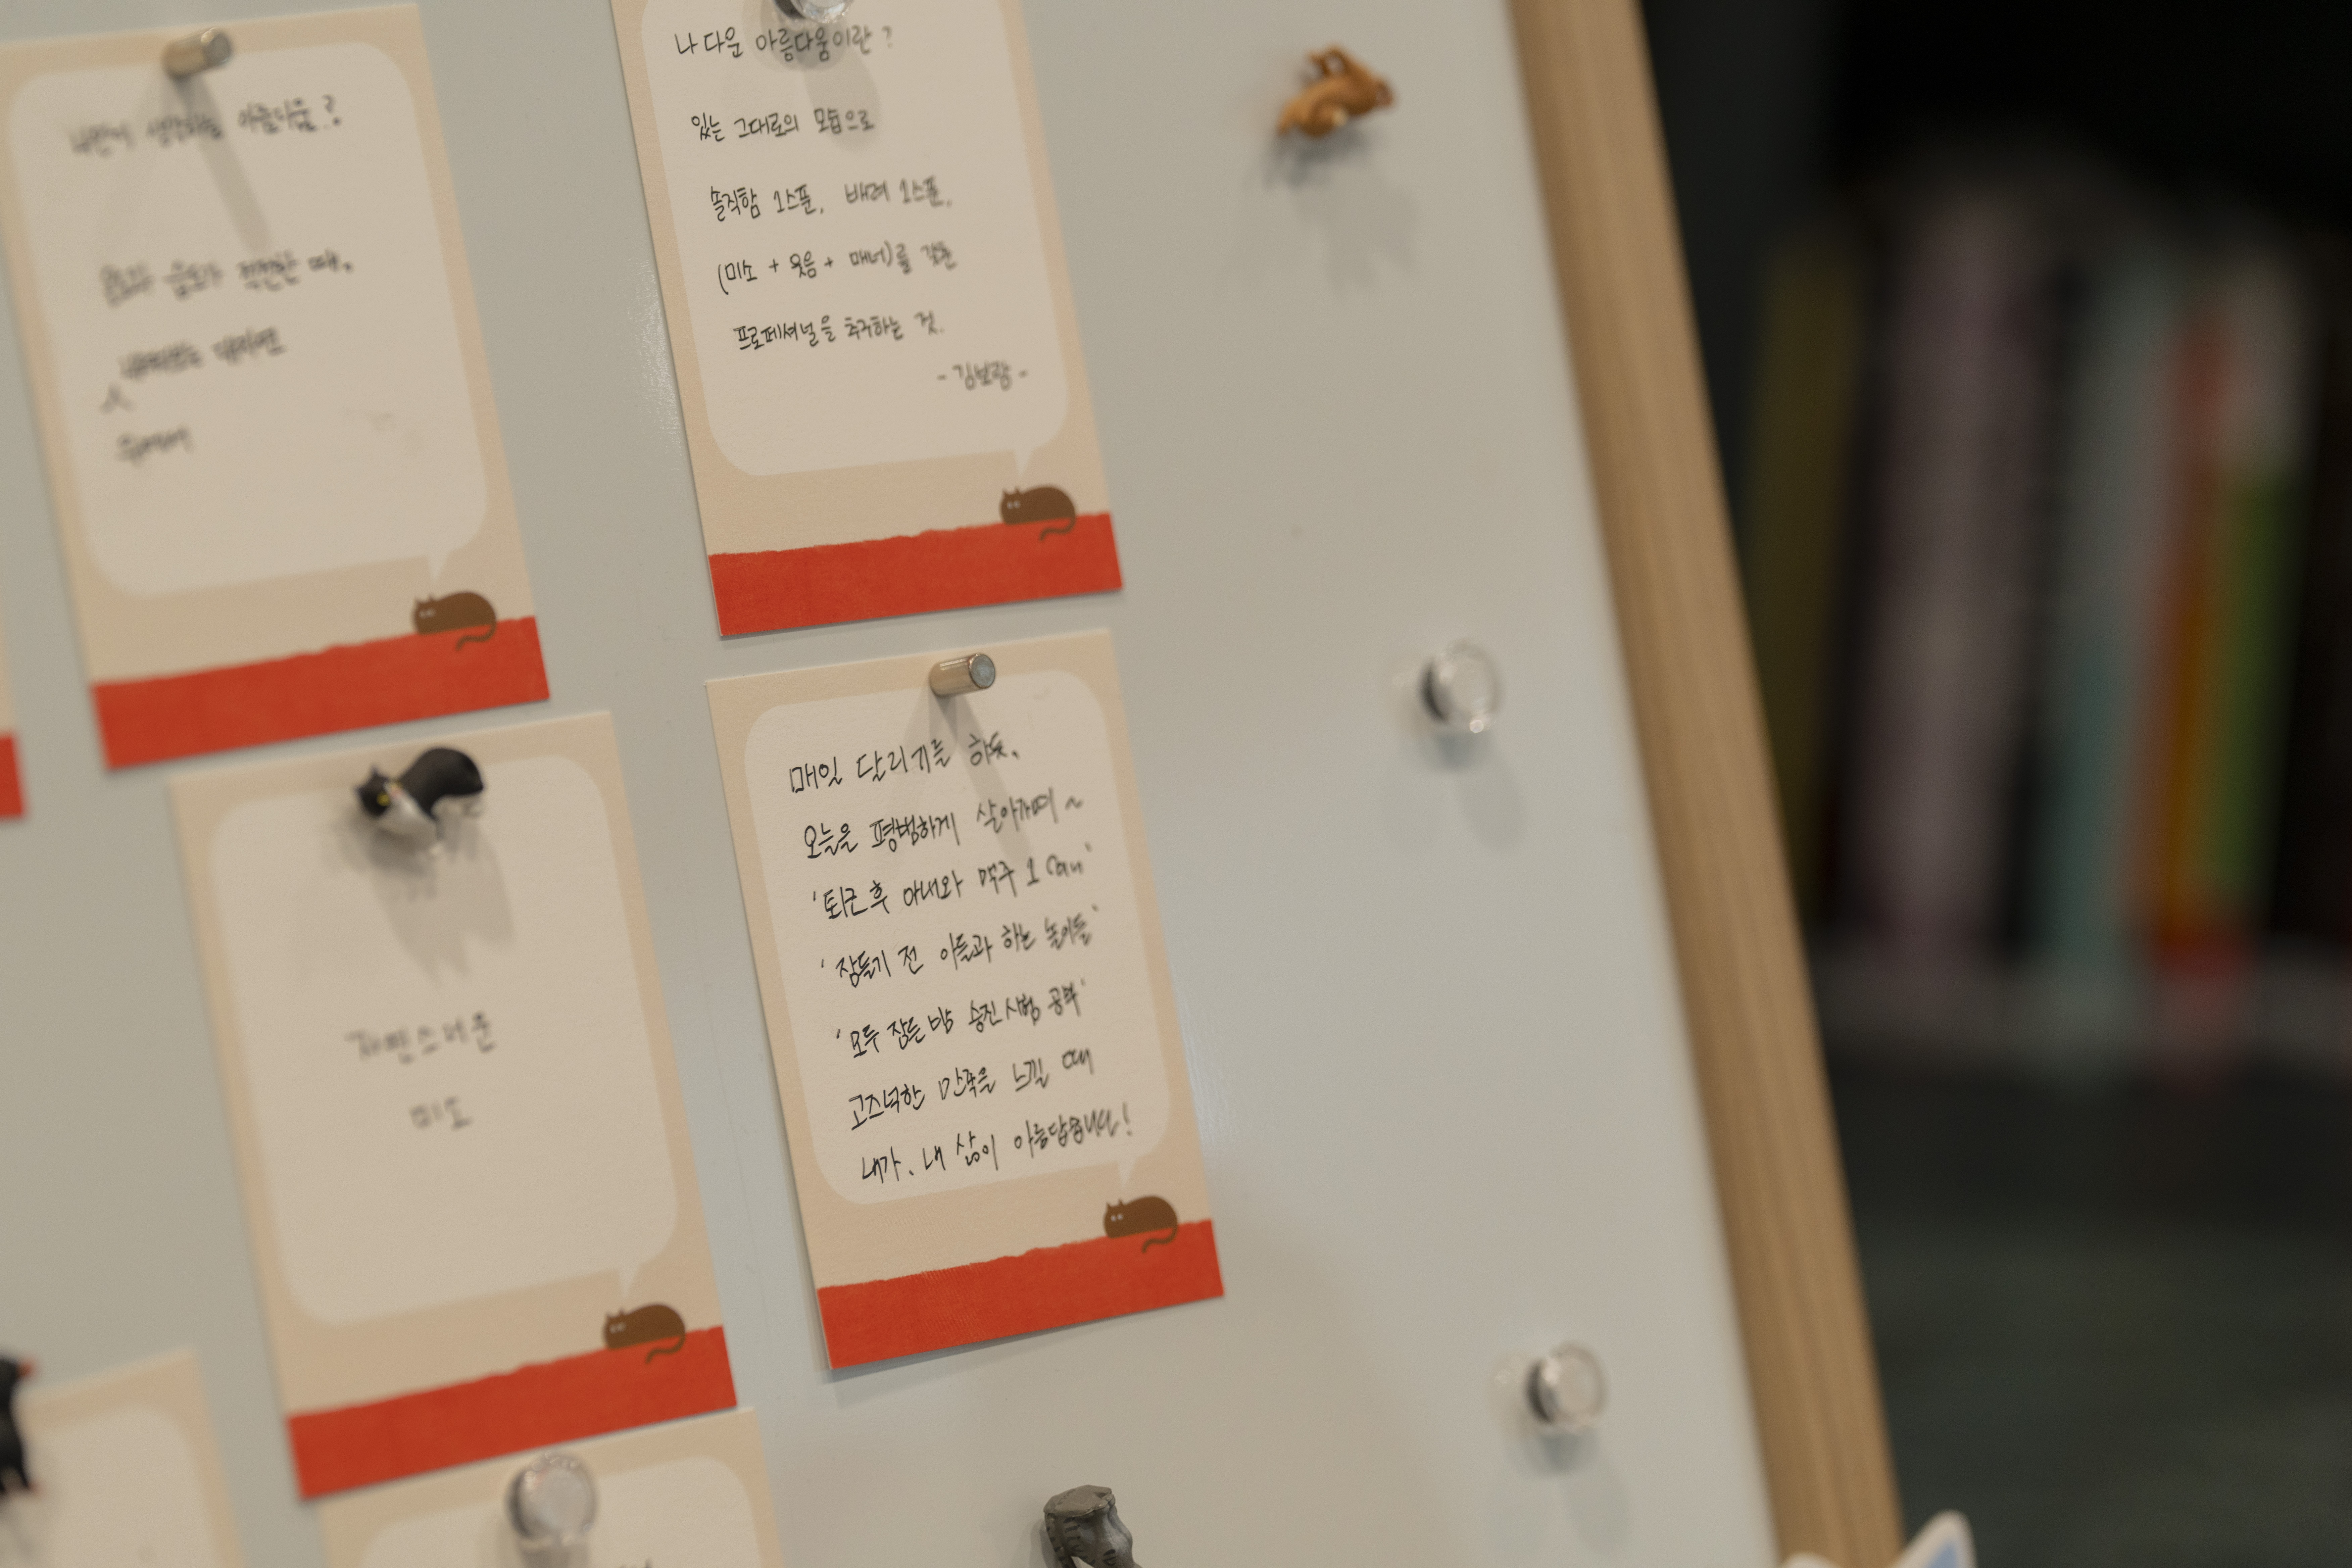 아름다움?
적절한 때.
나 다운 아름다움이란?
있는 그대로의 모습으로
솔직함 1스푼, 배려 1스푼,
(미소 + 웃음 + 매너)를 갖춘
프로페셔널을 추구하는 것.
- 김보람 -
자연스러운
미소
매일 달리기를 하듯,
오늘을 평범하게 살아가며 ~
'퇴근 후 아내와 맥주 1 can'
'잠들기 전 아들과 하는 놀이들'
'모두 잠든 밤 승진시험 공부'
고즈넉한 만족을 느낄 때
내가, 내 삶이 아름답습니다!